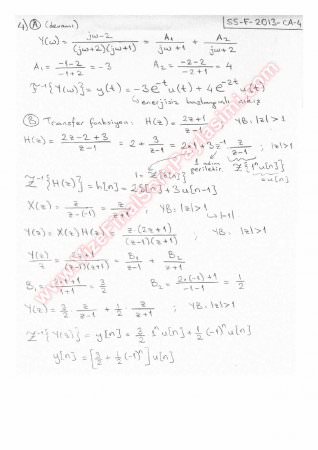 4) A (devamı) SS-F-2013-CA-4
Y(ω) = (jω-2)/((jω+2)(jω+1)) = A₁/(jω+1) + A₂/(jω+2)
A₁ = (-1-2)/(-1+2) = -3 A₂ = (-2-2)/(-2+1) = 4
F⁻¹{Y(ω)} = y(t) = -3e⁻ᵗu(t) + 4e⁻²ᵗu(t)
↳ enerjisiz başlangıçlı
B) Transfer fonksiyonu: H(z) = (2z+1)/(z-1) YB: |z|>1
H(z) = (2z-2+3)/(z-1) = 2 + 3/(z-1) = 2×1+3z⁻¹ z/(z-1) ; |z|>1
1 = Z{δ[n]} 1 adım geriletir. Z{1ⁿu[n]}
=u[n]
Z⁻¹{H(z)} = h[n] = 2δ[n] + 3u[n-1]
X(z) = z/(z-(-1)) = z/(z+1) ; YB: |z|>1
↳ |-1|
Y(z) = X(z)H(z) = z·(2z+1)/((z-1)(z+1)) ; YB: |z|>1
Y(z)/z = (2z+1)/((z-1)(z+1)) = B₁/(z-1) + B₂/(z+1)
B₁ = (2×1+1)/(1+1) = 3/2 B₂ = (2×(-1)+1)/(-1-1) = 1/2
Y(z) = 3/2 z/(z-1) + 1/2 z/(z+1) ; YB: |z|>1
Z⁻¹{Y(z)} = y[n] = 3/2 1ⁿu[n] + 1/2 (-1)ⁿ u[n]
y[n] = [3/2 + 1/2 (-1)ⁿ] u[n]